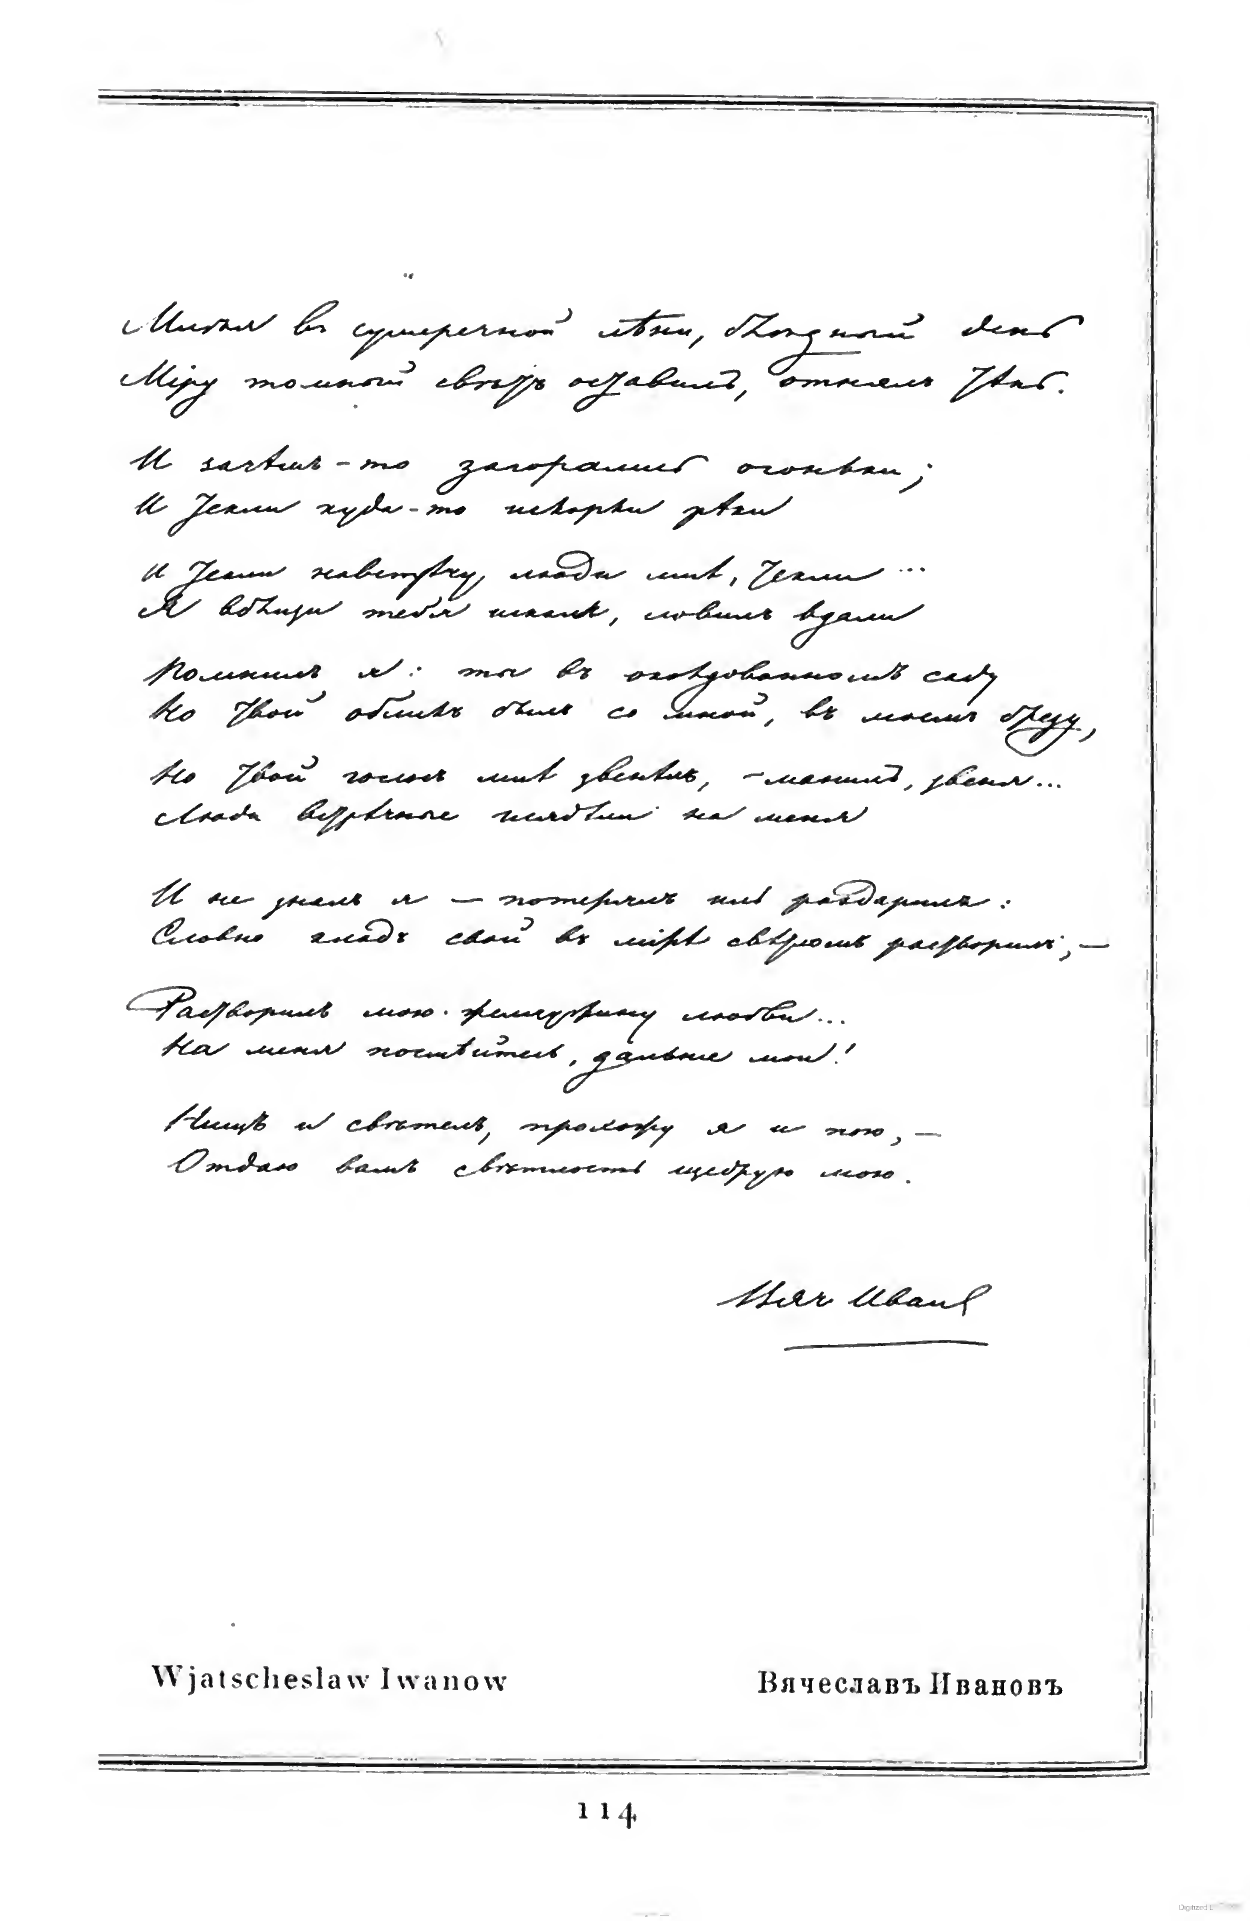 Млѣя въ сумеречной лѣни, блѣдный день
Міру томный свѣтъ оставилъ, отнялъ тѣнь.
И зачѣмъ-то загорались огоньки;
И текли куда-то искорки рѣки
И текли навстрѣчу, люди мнѣ, текли...
Я вблизи тебя искалъ, ловилъ вдали
Помнилъ я: ты въ околдованномъ саду
Но твой обликъ былъ со мной, въ моемъ бреду,
Но твой голосъ мнѣ звенѣлъ, – манилъ, звеня...
Люди встрѣчные глядѣли на меня
И не зналъ я – потерялъ иль раздарилъ:
Словно кладъ свой въ мірѣ свѣтломъ растворилъ, –
Растворилъ мою жемчужину любви...
На меня посмѣйтесь, дальние мои!
Нищъ и свѣтелъ, прохожу я и пою, –
Отдаю вамъ свѣтлость щедрую мою.
Вяч Иванов
Wjatscheslaw Iwanow
Вячеславъ Ивановъ
114